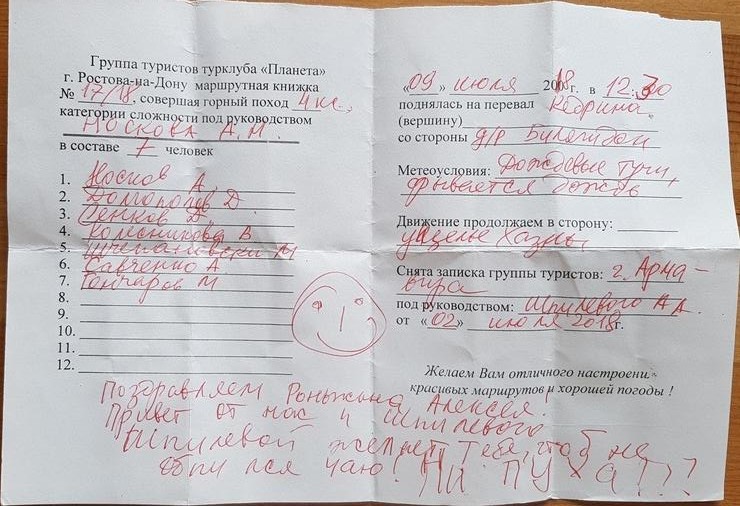 Группа туристов турклуба «Планета»
г. Ростова-на-Дону маршрутная книжка
№ 17/18, совершая горный поход 4 кс.,
категории сложности под руководством
Носкова А.М.
в составе 7 человек
1. Носков А.
2. Долгополов Д
3. Сенков Д.
4. Колесникова В
5. М
6. Савченко А.
7. Гончаров М
8.
9.
10.
11.
12.
«09» июля 2018г. в 12:30
поднялась на перевал Кедрина.
(вершину)
со стороны
Метеоусловия: Дождевые тучи,
дождь
Движение продолжаем в сторону:
ущелье Хазны
Снята записка группы туристов: г. Арма-
вира
под руководством: Шпилевого А А.
от «02» июля 2018г.
Желаем Вам отличного настроени
красивых маршрутов и хорошей погоды !
Поздравляем Роньжина Алексея!
Привет от нас и Шпилевого
Шпилевой желает Тебе, чтоб не
чаю! НИ ПУХА!??